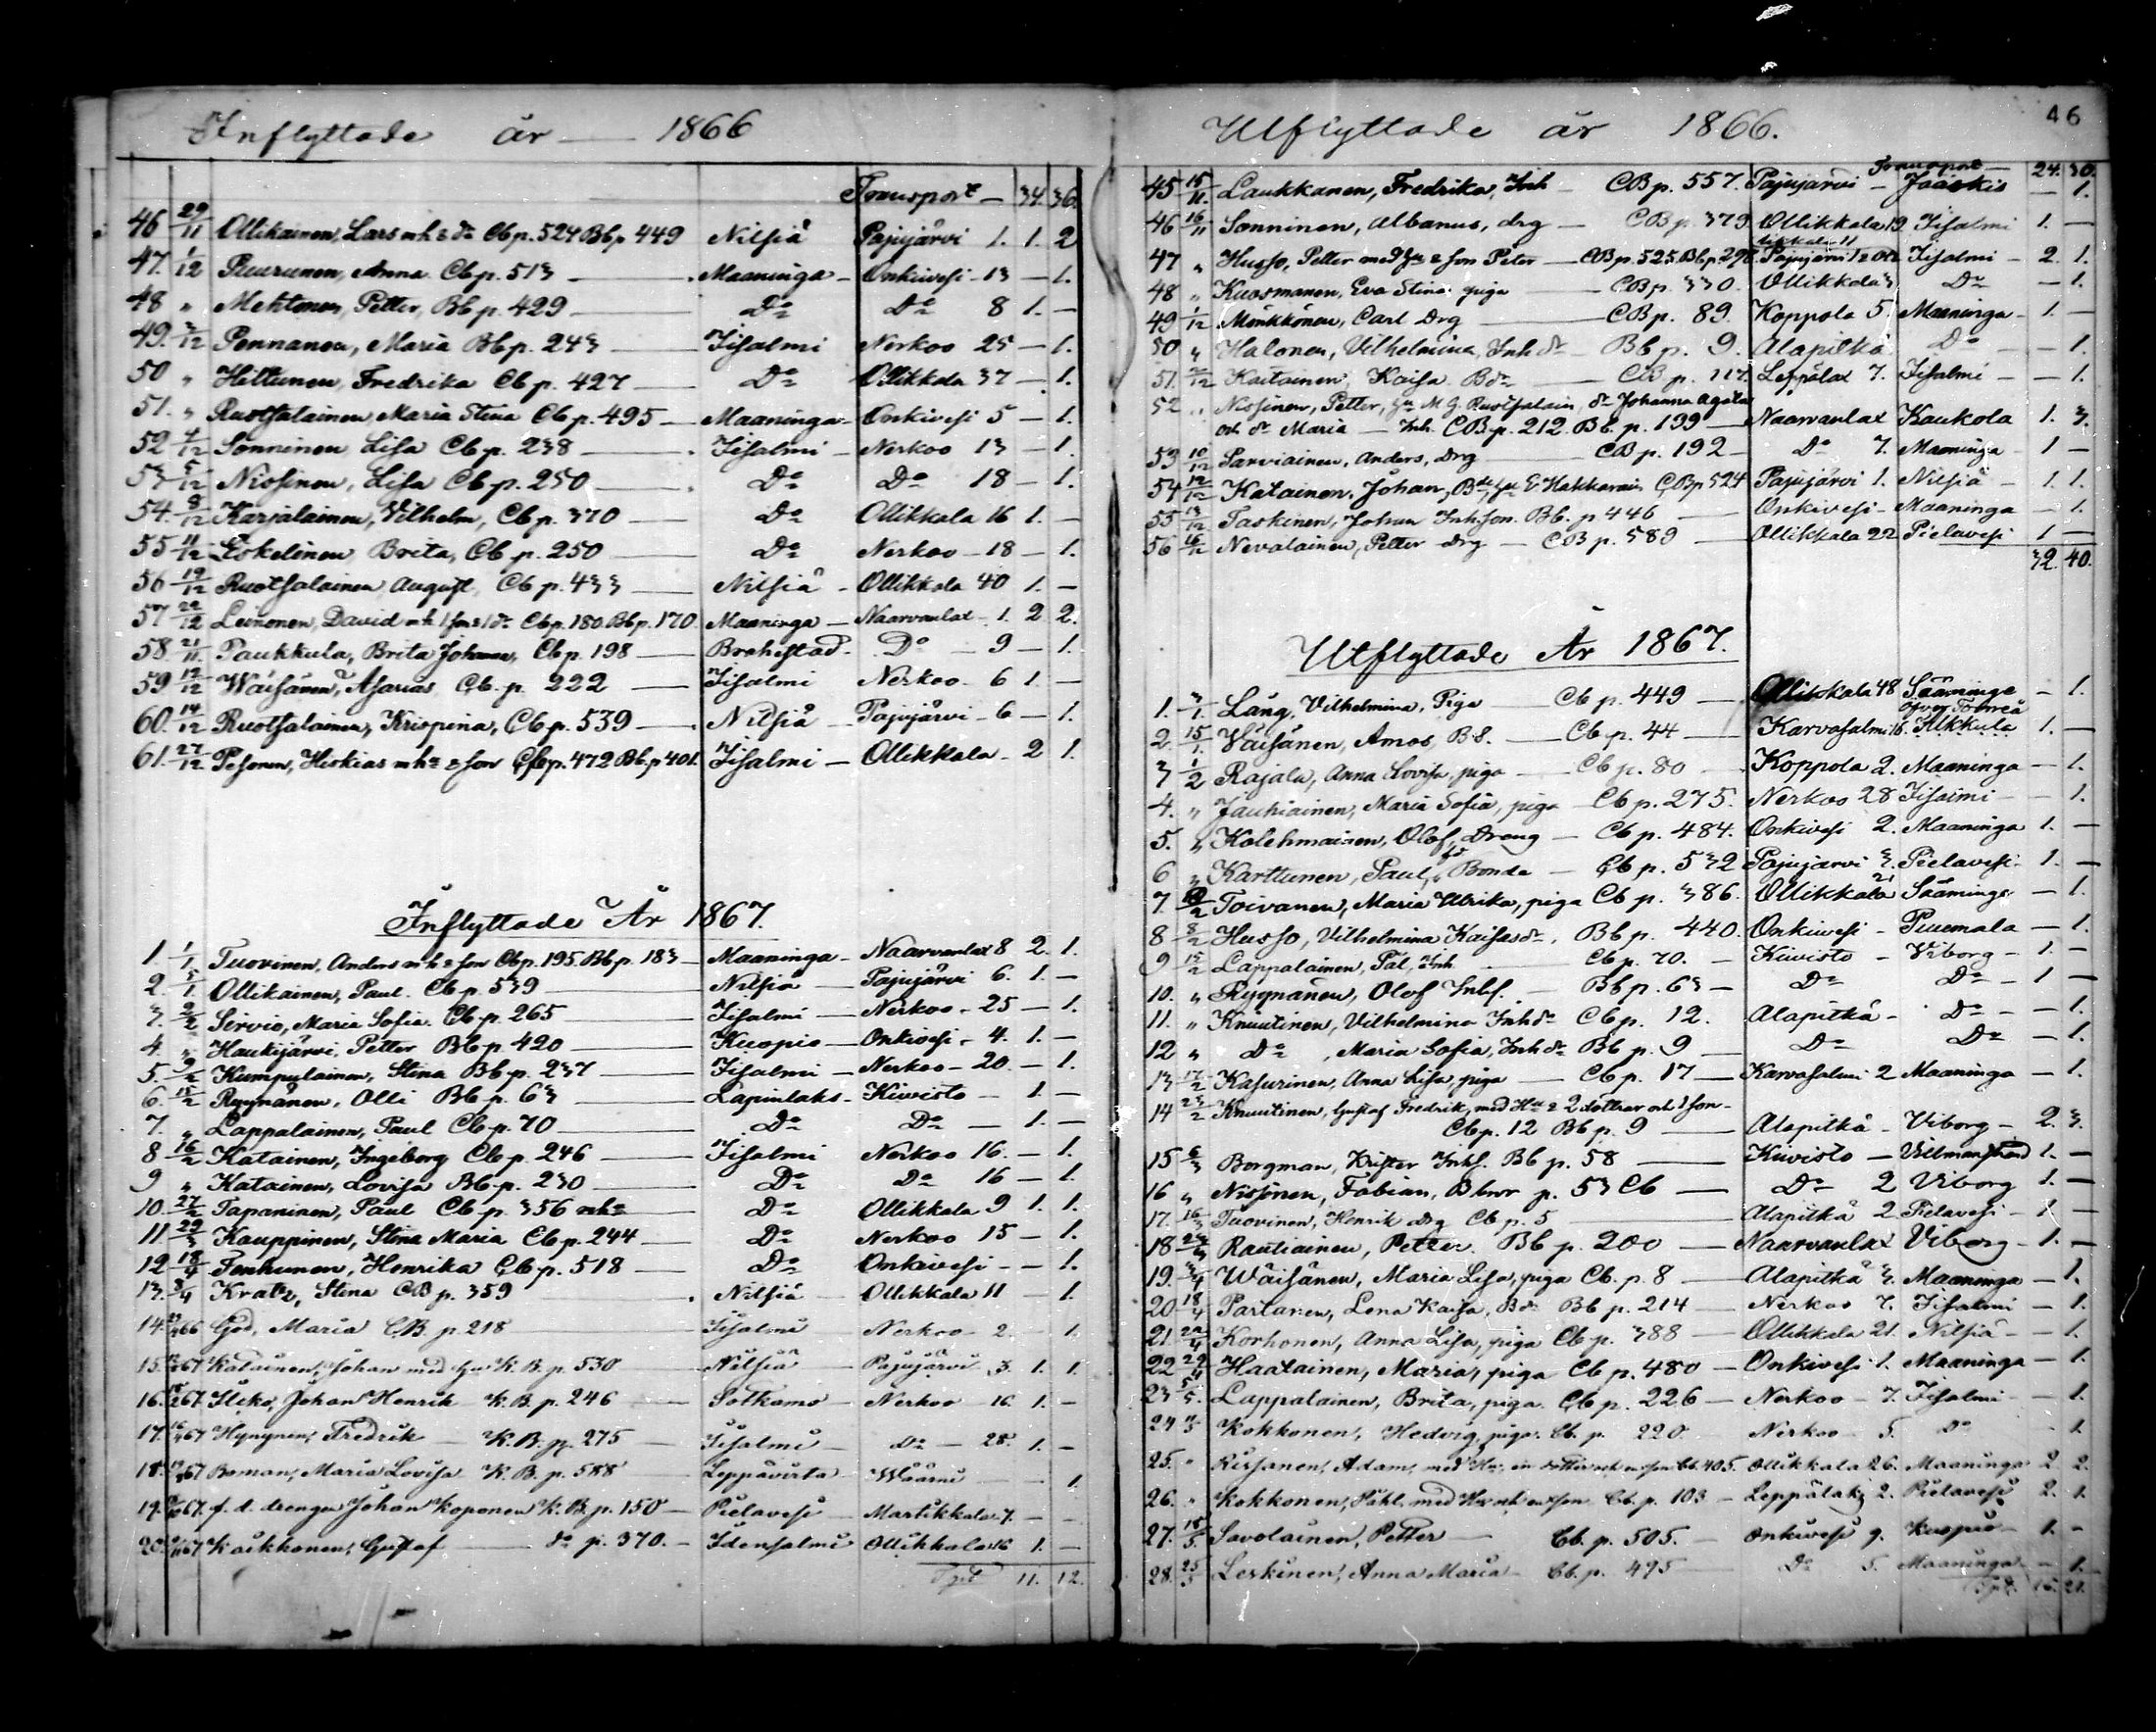 Inflyttade år 1866
Transport 34. 36.
46 29/11 Ollikainen, Lars mh & dr Cb p. 524 Bb p 449 Nilsiä Pajujärvi 1. 1. 2
47. 1/12 Puurunen, Anna Cb p. 513 Maaninga Onkivesi 13 — 1.
48 " Mehtonen, Petter, Bb p. 429 Do Do 8 1. —
49. 3/12 Pennanen, Maria Bb p. 243 Iisalmi Nerkoo 25 — 1.
50 " Hiltunen, Fredrika Cb p. 427 Do Ollikkala 37 — 1.
51. " Ruotsalainen, Maria Stina Cb p. 495 Maaninga Onkivesi 5 — 1.
52 4/12 Sonninen, Lisa Cb p. 238 Iisalmi Nerkoo 13 — 1.
53 5/12 Nissinen, Lisa Cb p. 250 Do Do 18 — 1.
54. 8/12 Karjalainen, Vilhelm, Cb p. 370 Do Ollikkala 16 1. —
55 11/12 Eskelinen Brita, Cb p. 250 Do Nerkoo 18 — 1.
56 19/12 Ruotsalainen August, Cb p. 433 Nilsiä Ollikkala 40 1. —
57 22/12 Leinonen, David mh 1 son & 1 dr Cb p. 180. Bb p. 170. Maaninga Naarvanlax 1. 2 2.
58. 21/11. Paukkula, Brita Johanna, Cb p. 198 Brahestad Do 9 — 1.
59 12/12 Wäisänen, Asarias Cb. p. 222 Iisalmi Nerkoo 6 1. —
60. 14/12 Ruotsalainen, Krispina, Cb p. 539 Nilsiä Pajujärvi 6 — 1.
61. 27/12 Pesonen, Hiskias mh & son Cb p. 472 Bb. p 401. Iisalmi Ollikkala 2 1.
Inflyttade År 1867.
1. 1/1 Tuovinen, Anders mh & son Cb p. 195 Bb p. 183 Maaninga Naarvanlax 8 2. 1.
2. 5/1. Ollikainen, Paul. Cb p. 539 Nilsiä Pajujärvi 6. 1. —
3. 2/2 Servio, Maria Sofia. Cb p. 265 Iisalmi Nerkoo 25 — 1.
4. " Haukijärvi, Petter Bb p. 420 Kuopio Onkivesi 4. 1. —
5. 9/2 Kumpulainen, Stina Bb p. 237 Iisalmi Nerkoo 20. — 1.
6. 15/2 Ryynänen, Olli Bb p. 63 Lapinlaks Kiwisto — 1. —
7. " Lappalainen, Paul Cb p. 70 Do Do — 1. —
8 16/2 Katainen, Ingeborg Cb p. 246 Iisalmi Nerkoo 16. — 1.
9 " Katainen, Lovisa Bb p. 230 Do Do 16 — 1.
10. 27/2 Tapaninen, Paul Cb p. 356 mh Do Ollikkala 9 1. 1.
11. 29/3 Kauppinen, Stina Maria Cb p. 244 Do Nerkoo 15 — 1.
12 18/4 Tenhunen, Henrika Cb p. 518 Do Onkivesi — — 1.
13. 3/4 Kratz, Stina CB p. 359 Nilsiä Ollikkala 11 — 1.
14. 66 God, Maria CB. p. 218 Iisalmi Nerkoo 2. — 1.
15. 67 Katainen, Johan med hu K. B. p. 530 Nilsiä Pajujärvi 3. 1. 1
16. 67 Johan Henrik K. B. p. 246 Sotkamo Nerkoo 16. 1. —
17. 67 Hynynen, Fredrik K. B. p. 275 Iisalmi Do 28. 1. —
18. 67 Boman, Maria Lovisa K. B. p. 588 Leppävirta Wäärni 1.
19. 67. f. d. drengen Johan Koponen K. B. p. 150 Pielavesi Martikkala 7. — —
20. 67 Kaikkonen, Gustaf do p. 370. Idensalmi Ollikkala 16 1. —
Tpt 11. 12.
Utflyttade år 1866.
46
Transport 24. 30.
45 15/11. Laukkanen, Fredrika, Inh CB p. 557. Pajujärvi Jääskis — 1.
46 16/11 Sonninen, Albanus, drg CB p. 379. Ollikkala 19 Iisalmi 1. —
47 " Husso, Petter med hu & son Peter CB p. 525. Bb p. 298 Pajujärvi Iisalmi 2. 1.
48 " Kuosmanen, Eva Stina piga CB p. 330. Ollikkala 3 Do — 1.
49 1/12 Mönkkönen, Carl Drg CB p. 89. Koppola 5. Maaninga 1. —
50 " Halonen, Vilhelmina, Inh dr Bb p. 9. Alapitkä Do — 1.
51. 2/12 Kaitainen, Kaisa Bdr CB p. 117. Leppälax 7. Iisalmi — 1.
52 " Nissinen, Petter, hu M. G. Ruotsalain, dr Johanna Agata
och dr Maria Inh. CB p. 212. Bb. p. 199 Naarvanlax Kaukola 1. 3.
53 10/12 Sarviainen, Anders, drg CB p. 192 Do 7. Maaninga 1 —
54 12/12 Katainen, Johan, hu E. Hakkarain CB p 524 Pajujärvi 1. Nilsiä 1. 1.
55 13/12 Taskinen, Johan Inh. son. Bb. p 446 Onkivesi Maaninga 1. —
56 16/12 Nevalainen, Petter drg CB p. 589 Ollikkala 22 Pielavesi 1 —
32. 40.
Utflyttade År 1867.
1. 3/1. Lång, Vilhelmina, Piga Cb p. 449 Ollikkala 48 Sääminge — 1.
2. 15/1. Wäisänen, Amos, B.S. Cb p. 44 Karvasalmi 16. Alkkula 1. —
3 1/2 Rajala, Anna Lovisa, piga Cb p. 80 Koppola 2. Maaninga — 1.
4. " Jauhiainen, Maria Sofia, piga Cb p. 275. Nerkoo 28 Iisalmi — 1.
5. " Kolehmainen, Olof, Dreng Cb p. 484. Onkivesi 2. Maaninga 1. —
6 " Karttunen, Paul, fd Bonde Cb p. 532 Pajujärvi 3. Pielavesi 1. —
7. /2 Toivanen, Maria Ulrika, piga Cb p. 386. Ollikkala 21 Sääminge — 1.
8 8/2 Husso, Vilhelmina Kaisas dr, Bb p. 440. Onkivesi Puumala — 1.
9 15/2 Lappalainen, Pål, Inh. Cb p. 70. Kiwisto Viborg 1. —
10. " Ryynänen, Olof Inhs. Bb p. 63 Do Do 1 —
11. " Knuutinen, Vilhelmina Inh dr Cb p. 12. Alapitkä Do — 1.
12 " Do, Maria Sofia, Inh dr Bb p. 9 Do Do — 1.
13 17/2 Kasurinen, Anna Lisa, piga Cb p. 17 Karvasalmi 2 Maaninga — 1.
14 23/2 Knuutinen, Gustaf Fredrik, med Hu & 2 döttrar och 1 son
Cb p. 12 Bb p. 9 Alapitkä Viborg 2. 3.
15 6/3 Borgman, Krister Inhs. Bb p. 58 Kiwisto Villmanstrand 1. —
16 " Nissinen, Fabian, p. 53 Cb Do 2 Viborg 1. —
17. 16/3 Tuovinen, Henrik drg Cb p. 5 Alapitkä 2 Pielavesi 1 —
18 Rautiainen, Petter. Bb p. 200 Naarvanlax Viborg 1. —
19. 3/4 Wäisänen, Maria Lisa, piga Cb. p. 8 Alapitkä 3. Maaninga — 1.
20. 18/4 Partanen, Lena Kaisa, Bdr Bb p. 214 Nerkoo 7. Iisalmi — 1.
21. 22/4 Korhonen, Anna Lisa, piga Cb p. 388 Ollikkala 21. Nilsiä — 1.
22 29/4 Haatainen, Maria, piga Cb p. 480 Onkivesi 1. Maaninga — 1.
23 5/5. Lappalainen, Brita, piga Cb p. 226 Nerkoo 7. Iisalmi — 1.
24 Kokkonen, Hedvig, piga Cb. p. 220. Nerkoo 5. Do 1.
25. " Riissanen, Adam, med Hu, en dotter och en son Cb. 405. Ollikkala 26. Maaninga 2. 2.
26. " Kokkonen, Påhl med Hu och en son Cb. p. 103 Leppälaks 2. Pielavesi 2. 1.
27. 18/5. Savolainen, Petter Cb. p. 505. Onkivesi 9. Kuopio 1. —
28. 25/5 Leskinen, Anna Maria Cb. p. 495 Do 5. Maaninga — 1.
Tpt. 16. 21.